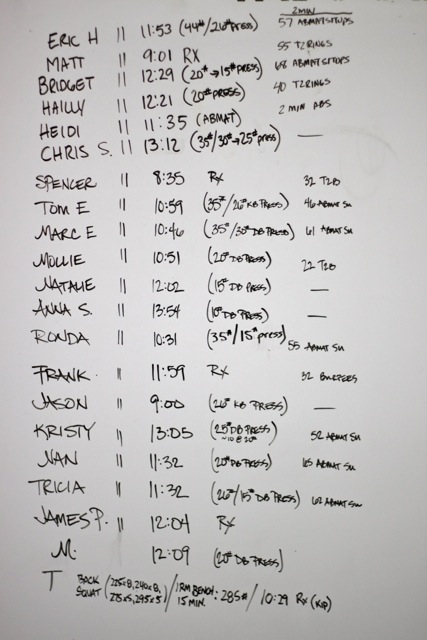 2 MIN
ERIC H || 11:53 (44#/26# PRESS) 57 ABMAT SITUPS
MATT || 9:01 RX 55 T2RINGS
BRIDGET || 12:29 (20#→15# PRESS) 68 ABMAT SITUPS
HAILLY || 12:21 (20# PRESS) 40 T2RINGS
HEIDI || 11:35 (ABMAT) 2 MIN ABS
CHRIS S. || 13:12 (35#/30#→25# PRESS) —
SPENCER || 8:35 RX 32 T2B
TOM E || 10:59 (35#/26# KB PRESS) 46 ABMAT SU
MARC E || 10:46 (35#/30# DB PRESS) 61 ABMAT SU
MOLLIE || 10:51 (20# DB PRESS) 22 T2B
NATALIE || 12:02 (15# DB PRESS) —
ANNA S. || 13:54 (10# DB PRESS) —
RONDA || 10:31 (35#/15# PRESS) 55 ABMAT SU
FRANK || 11:59 RX 32 BURPEES
JASON || 9:00 (26# KB PRESS) —
KRISTY || 13:05 (25# DB PRESS) 52 ABMAT SU
NAN || 11:32 (20# DB PRESS) 65 ABMAT SU
TRICIA || 11:32 (26#/15# DB PRESS) 62 ABMAT SU
JAMES P. || 12:04 RX
M. 12:09 (20# DB PRESS)
T BACK SQUAT (225x8, 240x8, 275x5, 295x5) / 1RM BENCH: 15 MIN. 285# / 10:29 RX (KB)